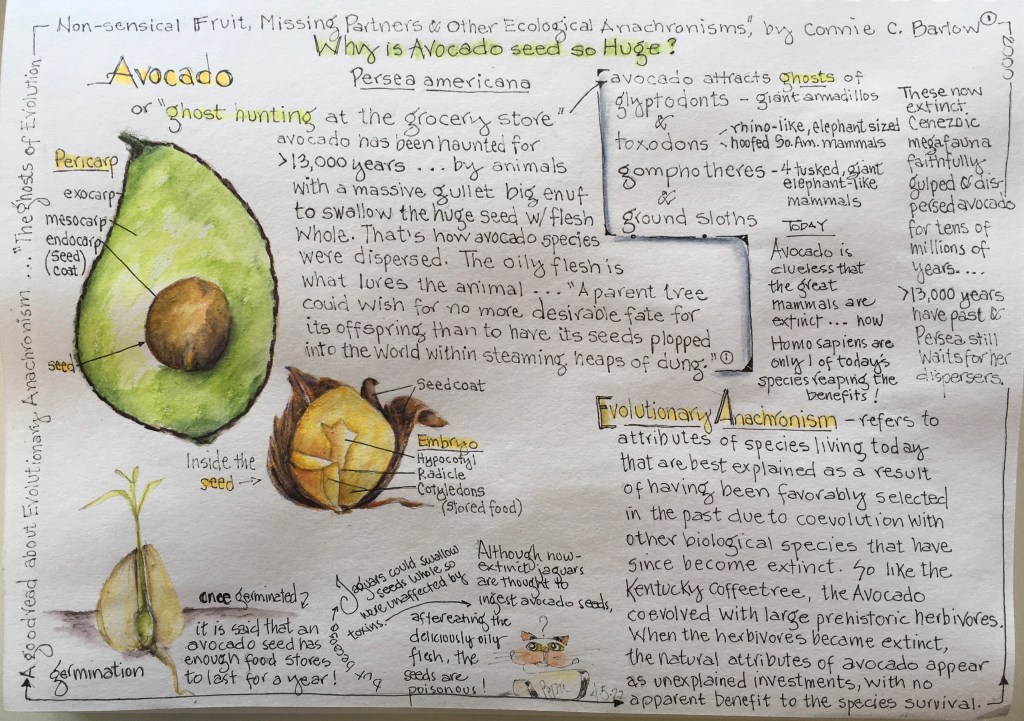 Non-sensical Fruit, Missing Partners & Other Ecological Anachronisms," by Connie C. Barlow ①
2000
Why is Avocado seed so Huge?
Avocado
Persea americana
or "ghost hunting at the grocery store"
avocado has been haunted for
>13,000 years ... by animals
with a massive gullet big enuf
to swallow the huge seed w/flesh
whole. That's how avocado species
were dispersed. The oily flesh is
what lures the animal ... "A parent tree
could wish for no more desirable fate for
its offspring than to have its seeds plopped
into the world within steaming heaps of dung." ①
avocado attracts ghosts of
glyptodonts - giant armadillos
&
toxodons - rhino-like, elephant sized
hoofed So. Am. mammals
gomphotheres - 4 tusked, giant
elephant-like
mammals
&
ground sloths
These now
extinct
Cenezoic
megafauna
faithfully
gulped & dis-
persed avocado
for tens of
millions of
years....
>13,000 years
have past &
Persea still
waits for her
dispersers.
TODAY
Avocado is
clueless that
the great
mammals are
extinct ... now
Homo sapiens are
only 1 of today's
species reaping the
benefits!
Pericarp
exocarp
mesocarp
endocarp
(seed)
(coat)
seed
Seedcoat
Embryo
Hypocotyl
Radicle
Cotyledons
(stored food)
Inside the
seed →
Evolutionary Anachronism - refers to
attributes of species living today
that are best explained as a result
of having been favorably selected
in the past due to coevolution with
other biological species that have
since become extinct. So like the
Kentucky coffeetree, the Avocado
coevolved with large prehistoric herbivores.
When the herbivores became extinct,
the natural attributes of avocado appear
as unexplained investments, with no
apparent benefit to the species survival.
germination
once germinated
it is said that an
avocado seed has
enough food stores
to last for a year!
Although now-
extinct jaguars
are thought to
ingest avocado seeds,
after eating the
deliciously oily
flesh, the
seeds are
poisonous!
But because
Jaguars could swallow
seeds whole so
were unaffected by
toxins.
?
4-5-22
A good read about Evolutionary Anachronism ... "The Ghosts of Evolution